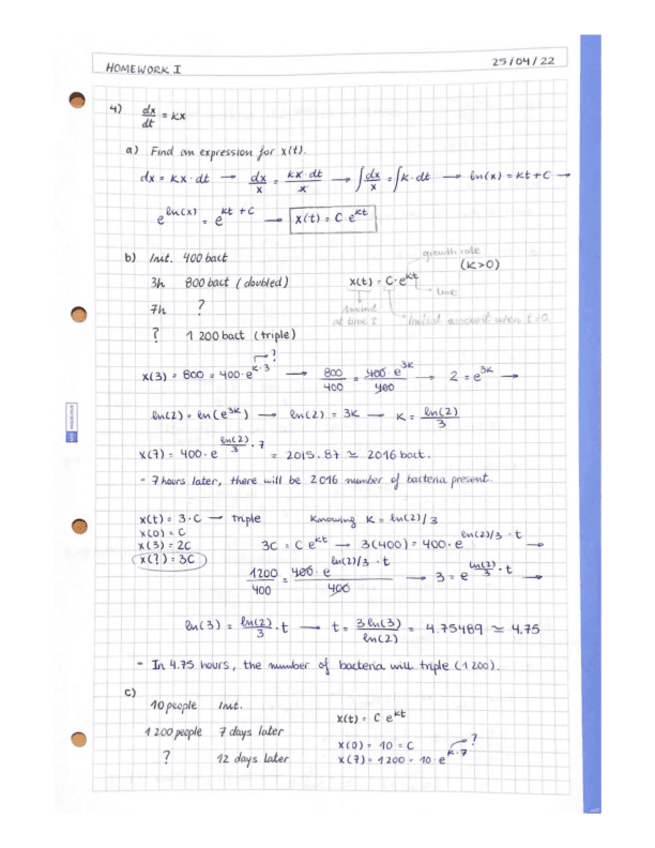 HOMEWORK I 25/04/22
4) dx/dt = kx
a) Find an expression for x(t).
dx = kx · dt → dx/x = kx·dt/x → ∫dx/x = ∫k·dt → ln(x) = kt + C →
e^ln(x) = e^kt + C → x(t) = C e^kt
b) Init. 400 bact
growth rate
(k>0)
3h 800 bact (doubled)
x(t) = C·e^kt
time
7h ?
Amount
at time t
initial amount when t=0
? 1 200 bact (triple)
x(3) = 800 = 400·e^k·3 ? → 800/400 = 400·e^3k/400 → 2 = e^3k →
ln(2) = ln(e^3k) → ln(2) = 3k → k = ln(2)/3
x(7) = 400·e^ln(2)/3 · 7 = 2015.87 ≃ 2016 bact.
- 7 hours later, there will be 2016 number of bacteria present.
x(t) = 3·C → triple Knowing k = ln(2)/3
x(0) = C
x(3) = 2C 3C = C e^kt → 3(400) = 400·e^ln(2)/3 · t →
x(?) = 3C
1200/400 = 400·e^ln(2)/3 · t/400 → 3 = e^ln(2)/3 · t →
ln(3) = ln(2)/3 · t → t = 3ln(3)/ln(2) = 4.75489 ≃ 4.75
- In 4.75 hours, the number of bacteria will triple (1 200).
c)
10 people Init.
x(t) = C e^kt
1 200 people 7 days later
x(0) = 10 = C
? 12 days later
x(7) = 1200 = 10·e^k·7 ?